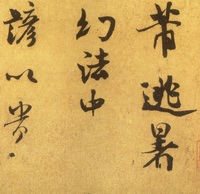 芾逃暑
幻法中
諺以貴